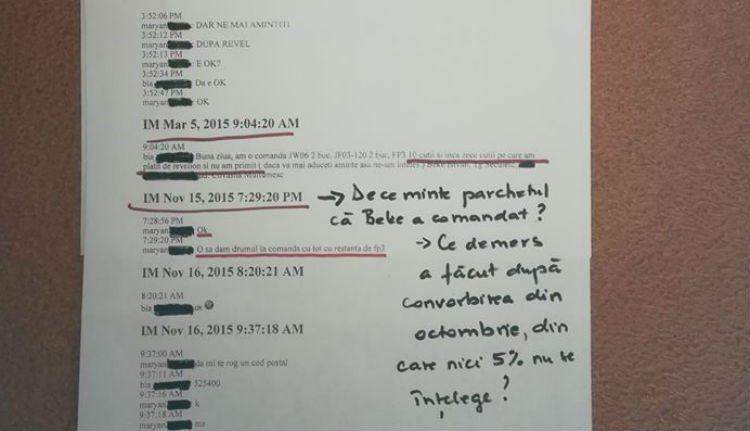 3:52:06 PM
maryan : DAR NE MAI AMINTITI
3:52:12 PM
maryan : DUPA REVEL
3:52:13 PM
maryan : E OK?
3:52:34 PM
bia Da e OK
3:52:47 PM
maryan OK
IM Mar 5, 2015 9:04:20 AM
9:04:20 AM
bia Buna ziua, am o comanda JW06 2 buc, JF03-120 2 buc, FP3 10 cutii si inca zece cutii pe care am
platit de revelion si nu am primit ( daca va mai aduceti aminte asa ne-am inteles ) Beke Istvan, Tg Secuiesc,
Covasna Multumesc
IM Nov 15, 2015 7:29:20 PM
→ De ce minte parchetul
că Beke a comandat?
7:28:56 PM
maryan Ok
7:29:20 PM
maryan O sa dam drumul la comanda cu tot cu restanta de fp3
→ Ce demers
a făcut după
convorbirea din
octombrie, din
care nici 5% nu te
înțelege?
IM Nov 16, 2015 8:20:21 AM
8:20:21 AM
bia ok
IM Nov 16, 2015 9:37:18 AM
9:37:00 AM
maryan da mi te rog un cod postal
9:37:11 AM
bia 525400
9:37:16 AM
maryan k
9:37:18 AM
maryan ms